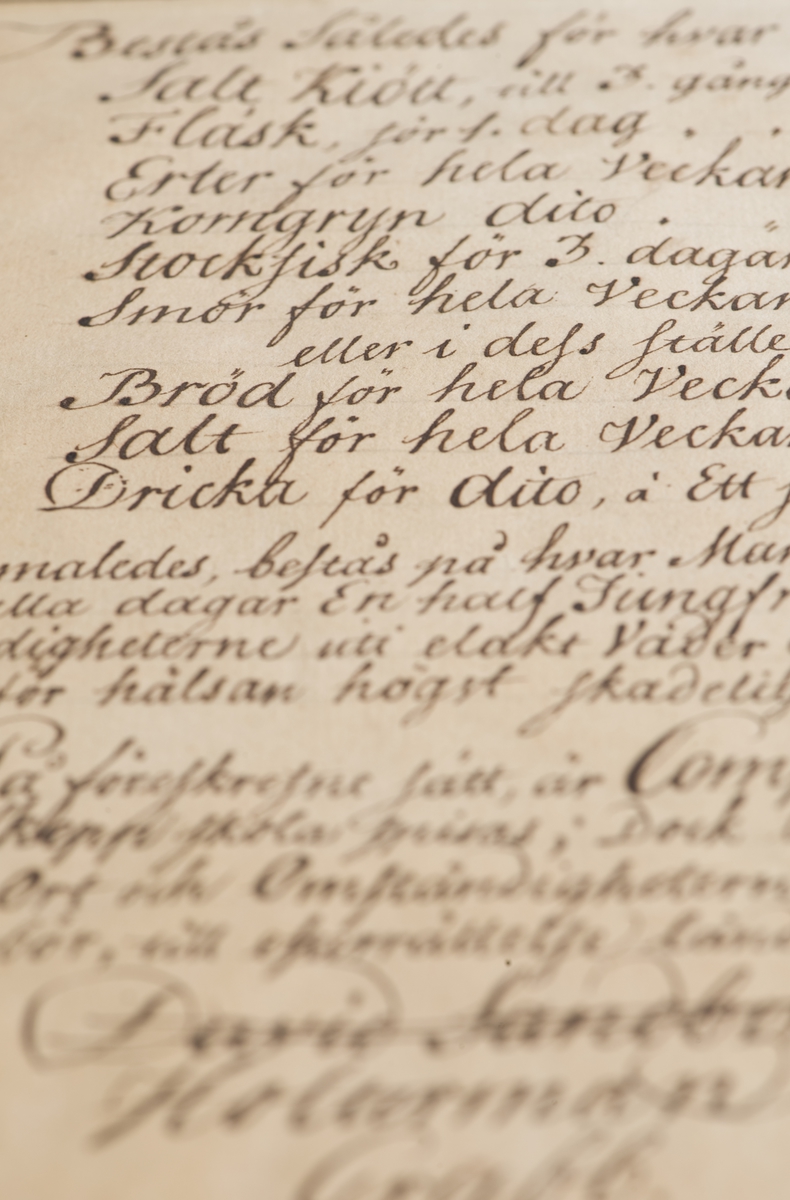 Bestås Således för hvar
Salt Kiött, till 3. gång
Fläsk, för 1. dag .  .
Erter för hela Veckan
Korngryn dito .
Stockfisk för 3. dagar
Smör för hela Veckan
eller i dess ställe
Bröd för hela Veck
Salt för hela Veckan
Dricka för dito, á Ett
maledes, bestås på hvar Man
alla dagar En half Jungfr
digheterne uti elakt Väder
för hälsan högst skadelig
På föreskrefne sätt, är Comp
Skepp skola spisas; Dock
Ort och Omständigheterne
till efterrättelse länd
David Sandbe
Holterman